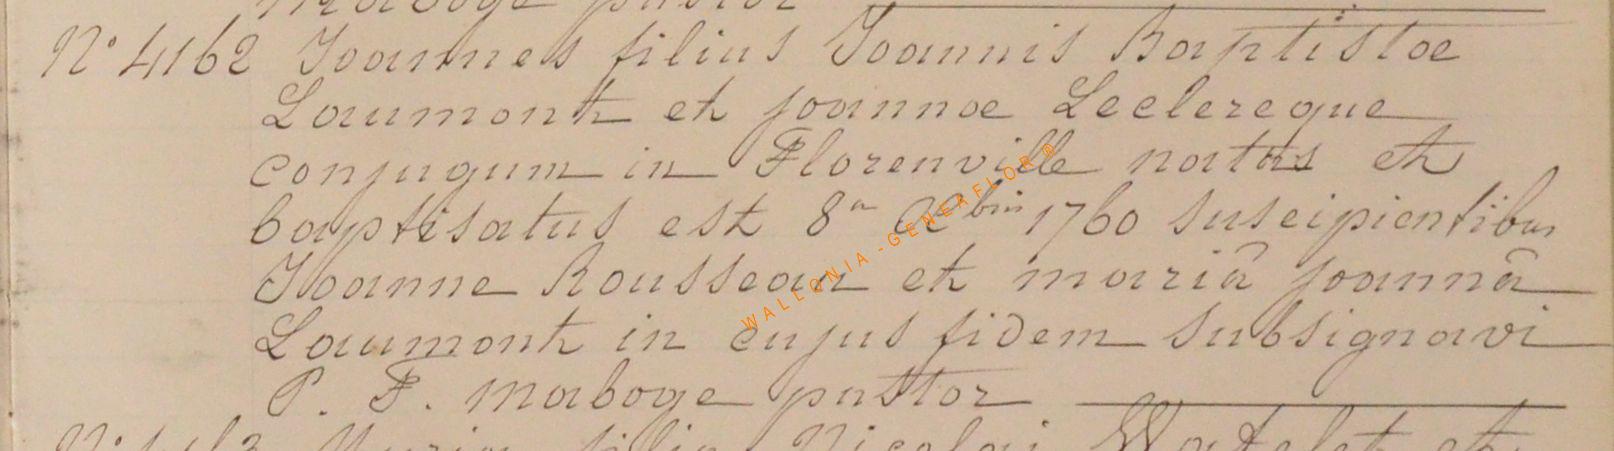 Maboge pastor
N° 4162 Joannes filius Joannis Baptistae
Laumont et joannae Leclercque
conjugum in Florenville natus et
baptisatus est 8a 1760 suscipientibus
Joanne Rousseau et mariâ joannâ
Laumont in cujus fidem subsignavi
P. F. Maboge pastor
Maria filia Nicolai Watelet et
WALLONIA-GENERFLOR®